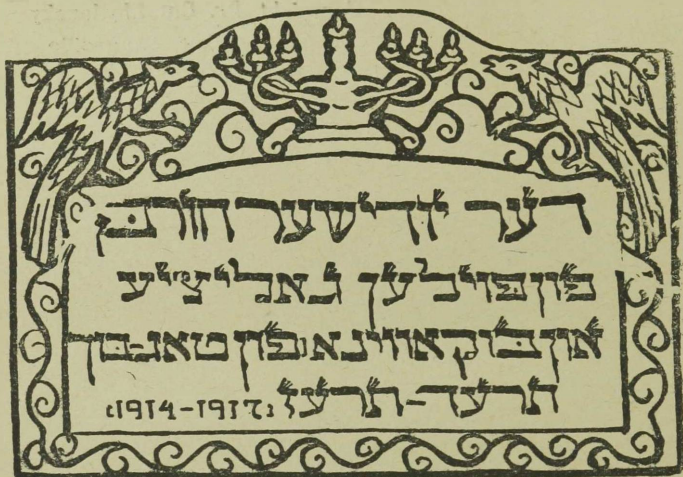 דער יודישער חורבן
פון פוילען גאליציע
און בוקאווינא, פון טאג-בוך
תרעד-תרעז 1914-1917